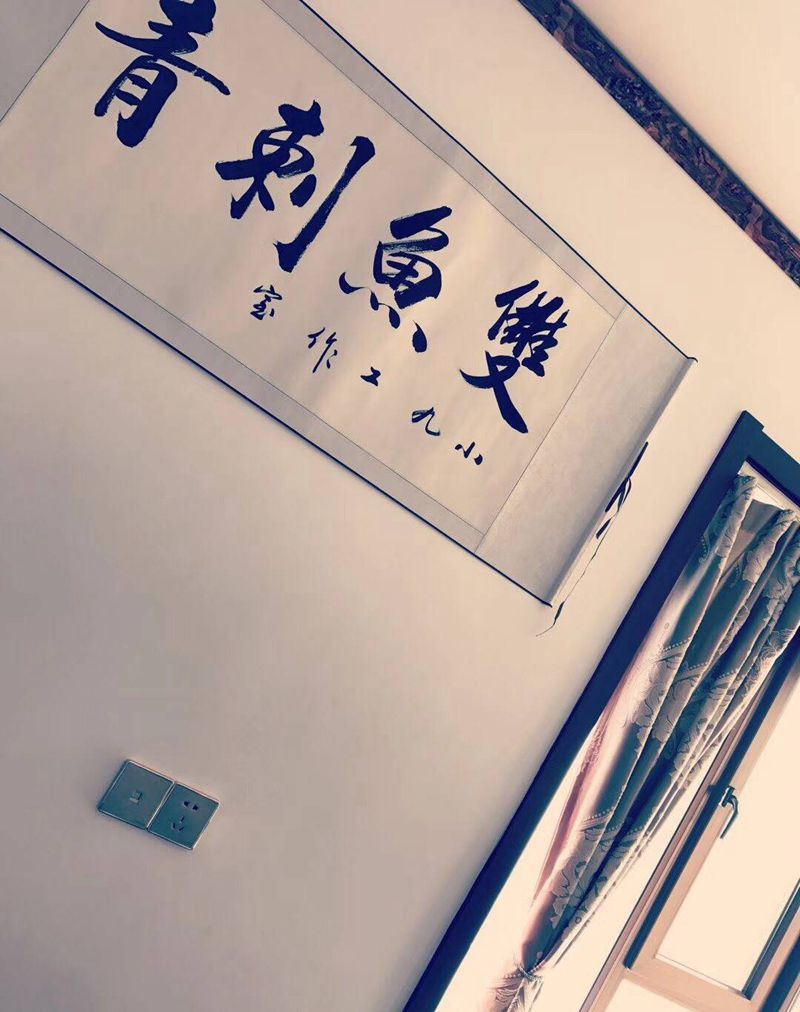 雙魚刺青
小九工作室